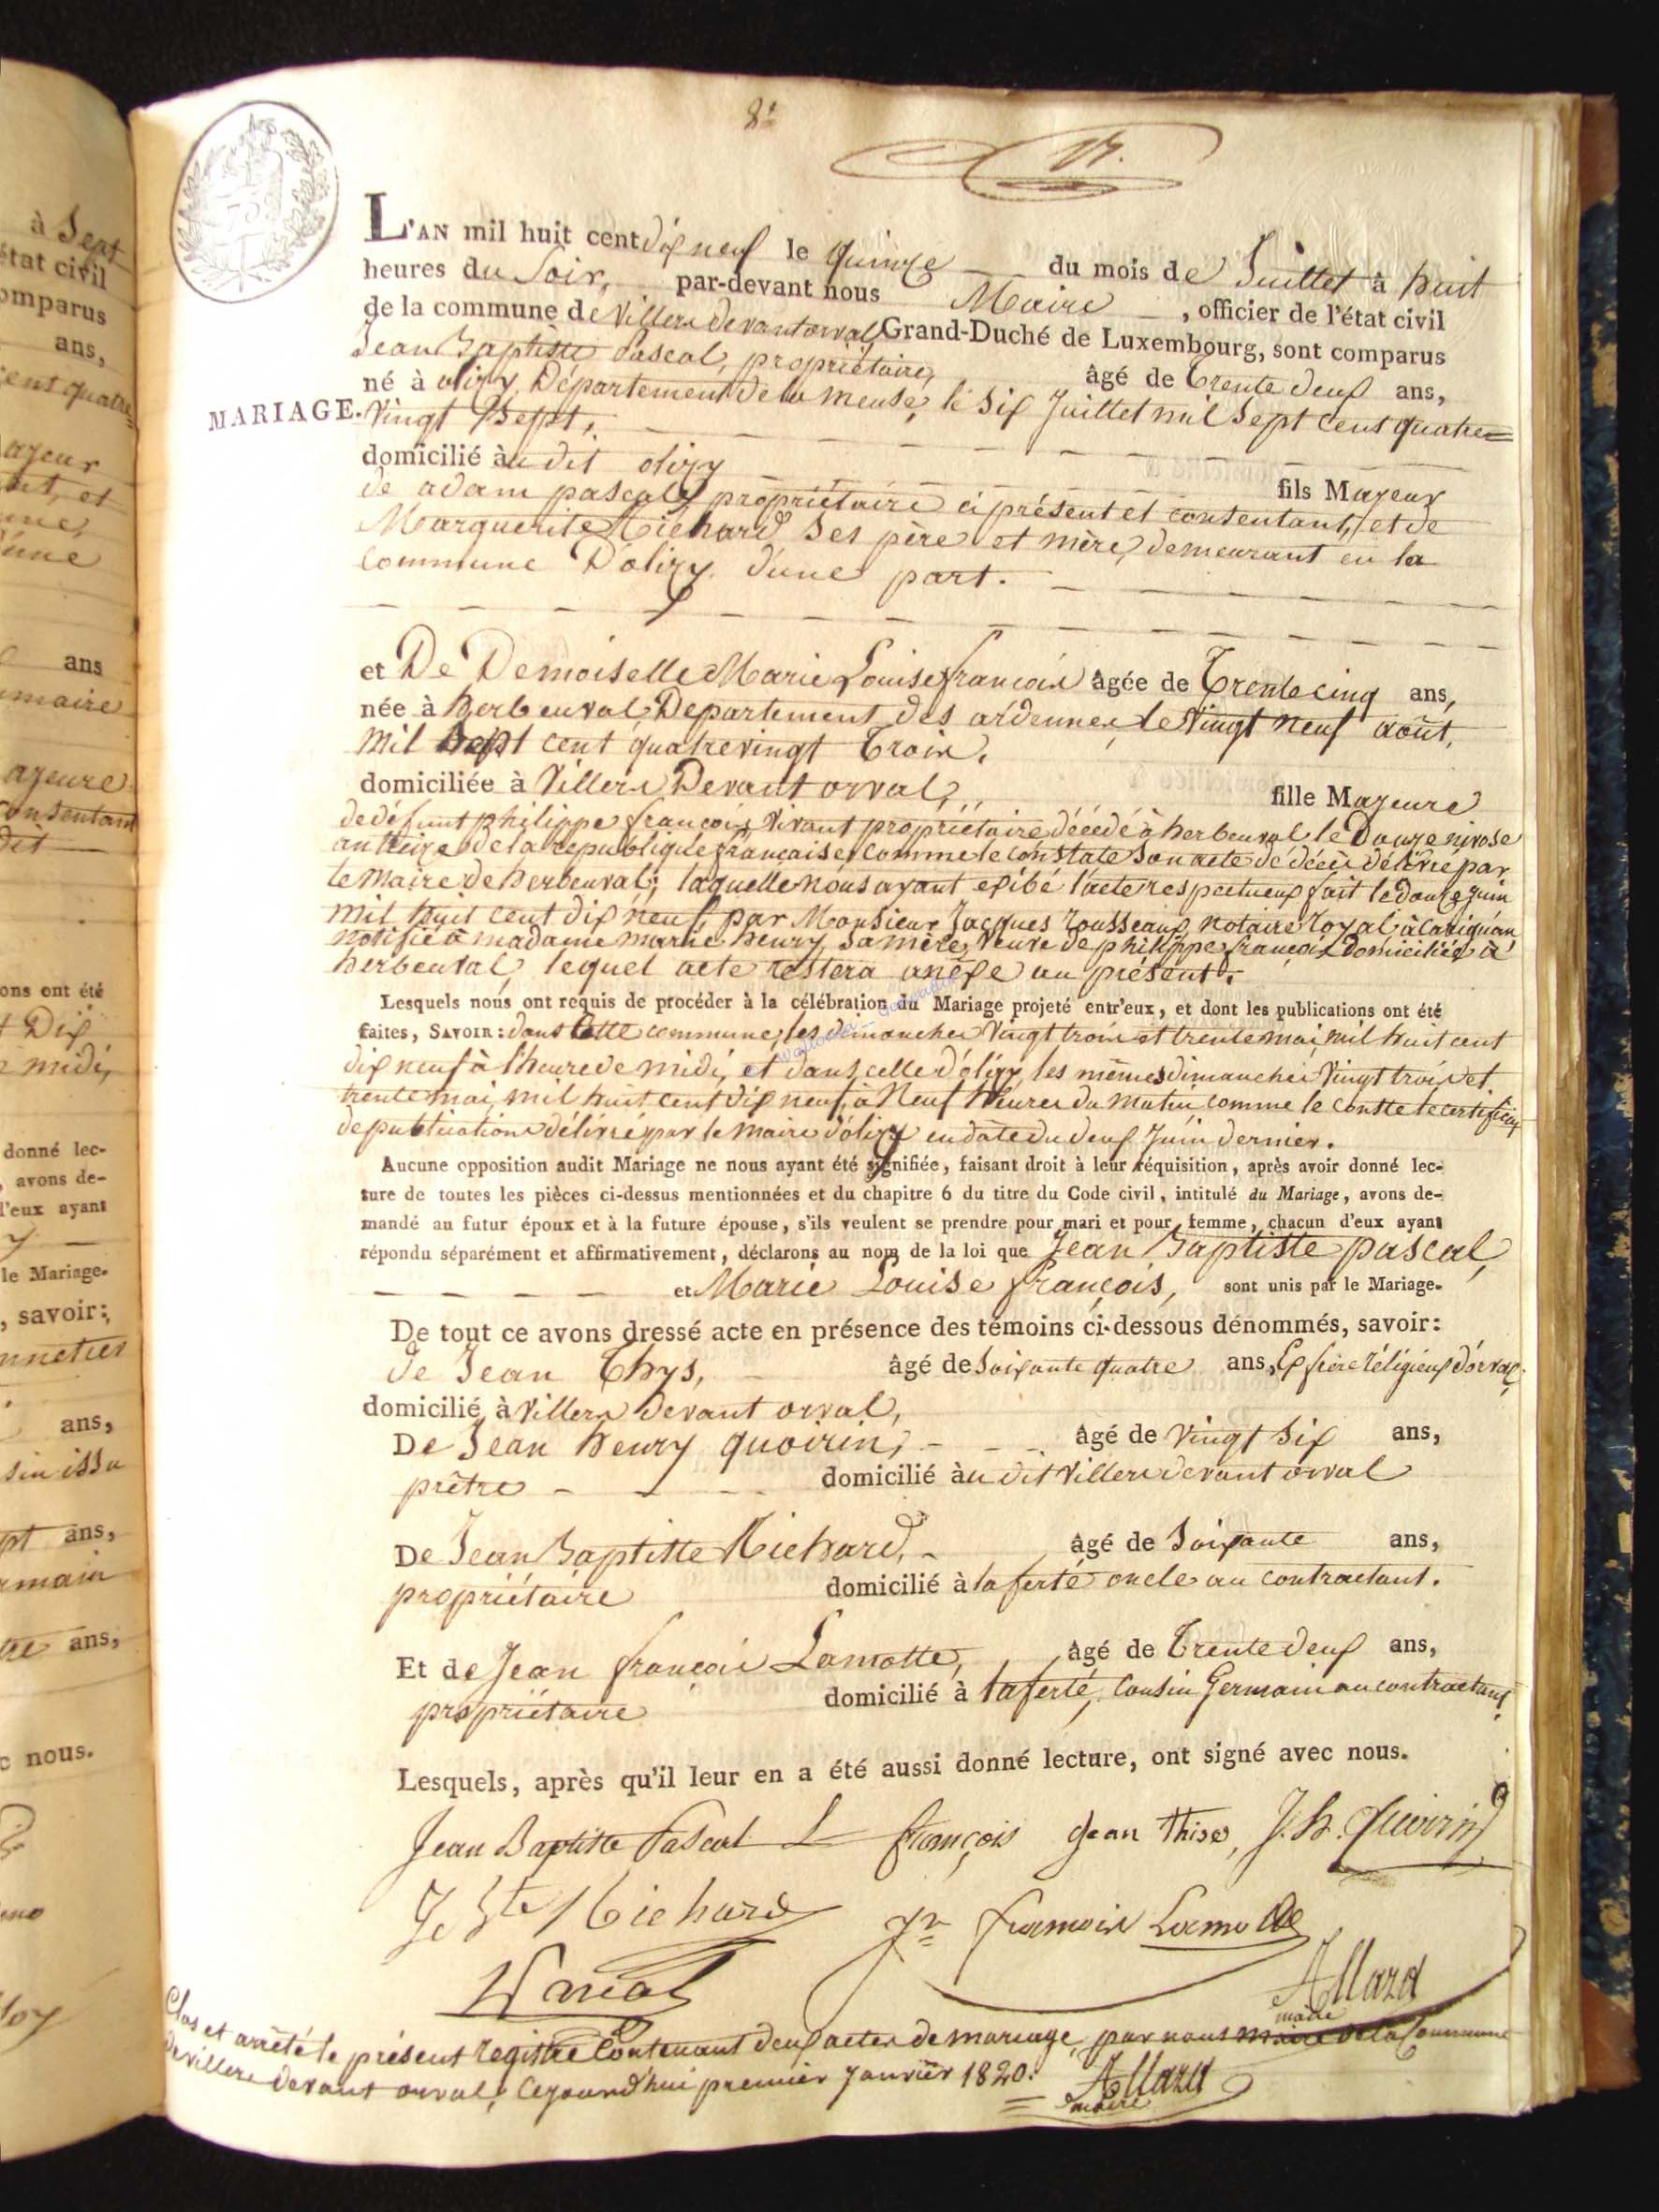 8e
17.
L'AN mil huit cent dix neuf le quinze du mois de Juillet à huit
heures du Soir, par-devant nous Maire, officier de l'état civil
de la commune de Villers devant orval, Grand-Duché de Luxembourg, sont comparus
Jean Baptiste Pascal, propriétaire, âgé de Trente deux ans,
né à olizy, Département de la meuse, le Six Juillet mil Sept Cent quatre=
MARIAGE. Vingt Sept,
domicilié àu dit olizy fils Majeur
de adam pascal, propriétaire ci présent et consentant, et de
Marguerite Richard Ses père et mère, demeurant en la
Commune D'olizy d'une part.
et De Demoiselle Marie Louise françois âgée de Trente cinq ans,
née à herbeuval, Département des ardennes, le Vingt neuf août,
Mil Sept cent quatrevingt Trois.
domiciliée à Villers Devant orval, fille Majeure
de défunt philippe françois, Vivant propriétaire, décédé à herbeuval le Douze nivose
an treize de la république française, comme le constate Son acte de décès délivré par
le Maire de herbeuval; laquelle nous ayant exibé l'acte respectueux fait le Douze juin
mil huit cent dix neuf, par Monsieur Jacques rousseaux notaire royal à Carignan
notifié à madame marie henry, Sa mère, Veuve de philippe françois domiciliée à
herbeuval, lequel acte restera anéxe au présent.
Lesquels nous ont requis de procéder à la célébration du Mariage projeté entr'eux, et dont les publications ont été
faites, SAVOIR: dans Cette commune, les dimanches Vingt trois et trente mai mil huit cent
dix neuf à l'heure de midi, et dans celle d'olizy, les mêmes dimanches Vingt trois et
trente mai, mil huit cent dix neuf, à Neuf Heures du Matin comme le conste le certificat
de publications délivré par le maire d'olizy en date du deux Juin dernier.
Aucune opposition audit Mariage ne nous ayant été signifiée, faisant droit à leur réquisition, après avoir donné lec-
ture de toutes les pièces ci-dessus mentionnées et du chapitre 6 du titre du Code civil, intitulé du Mariage, avons de-
mandé au futur époux et à la future épouse, s'ils veulent se prendre pour mari et pour femme, chacun d'eux ayant
répondu séparément et affirmativement, déclarons au nom de la loi que Jean Baptiste pascal,
et Marie Louise françois, sont unis par le Mariage.
De tout ce avons dressé acte en présence des témoins ci-dessous dénommés, savoir:
de Jean Thys, âgé de Soixante quatre ans, Ex frère réligieux d'orval,
domicilié à Villers devant orval,
De Jean henry quoirin, âgé de Vingt Six ans,
prêtre domicilié àu dit Villers devant orval
De Jean Baptiste Richard, âgé de Soixante ans,
propriétaire domicilié à laferté oncle au contractant.
Et de Jean françois Lamotte, âgé de Trente deux ans,
propriétaire domicilié à laferté, Cousin Germain au contractant.
Lesquels, après qu'il leur en a été aussi donné lecture, ont signé avec nous.
Jean Baptiste Pascal L françois Jean Thise, J. h. Quoirin
J Bte Richard Jn françois Lamotte
Allard
maire
Clos et arrêté le présent registre Contenant deux actes de mariage, par nous maire de la Commune
de villers devant orval, Cejourd'hui premier Janvier 1820.
Allard
maire
à Sept
état civil
omparus
ans,
cent quatre
ajeur
ans
maire
ajeure
consentant
dit
ons ont été
t Dix
midi,
donné lec-
, avons de-
d'eux ayant
le Mariage.
, savoir:
ans,
sin issu
pt ans,
rmain
tre ans,
c nous.